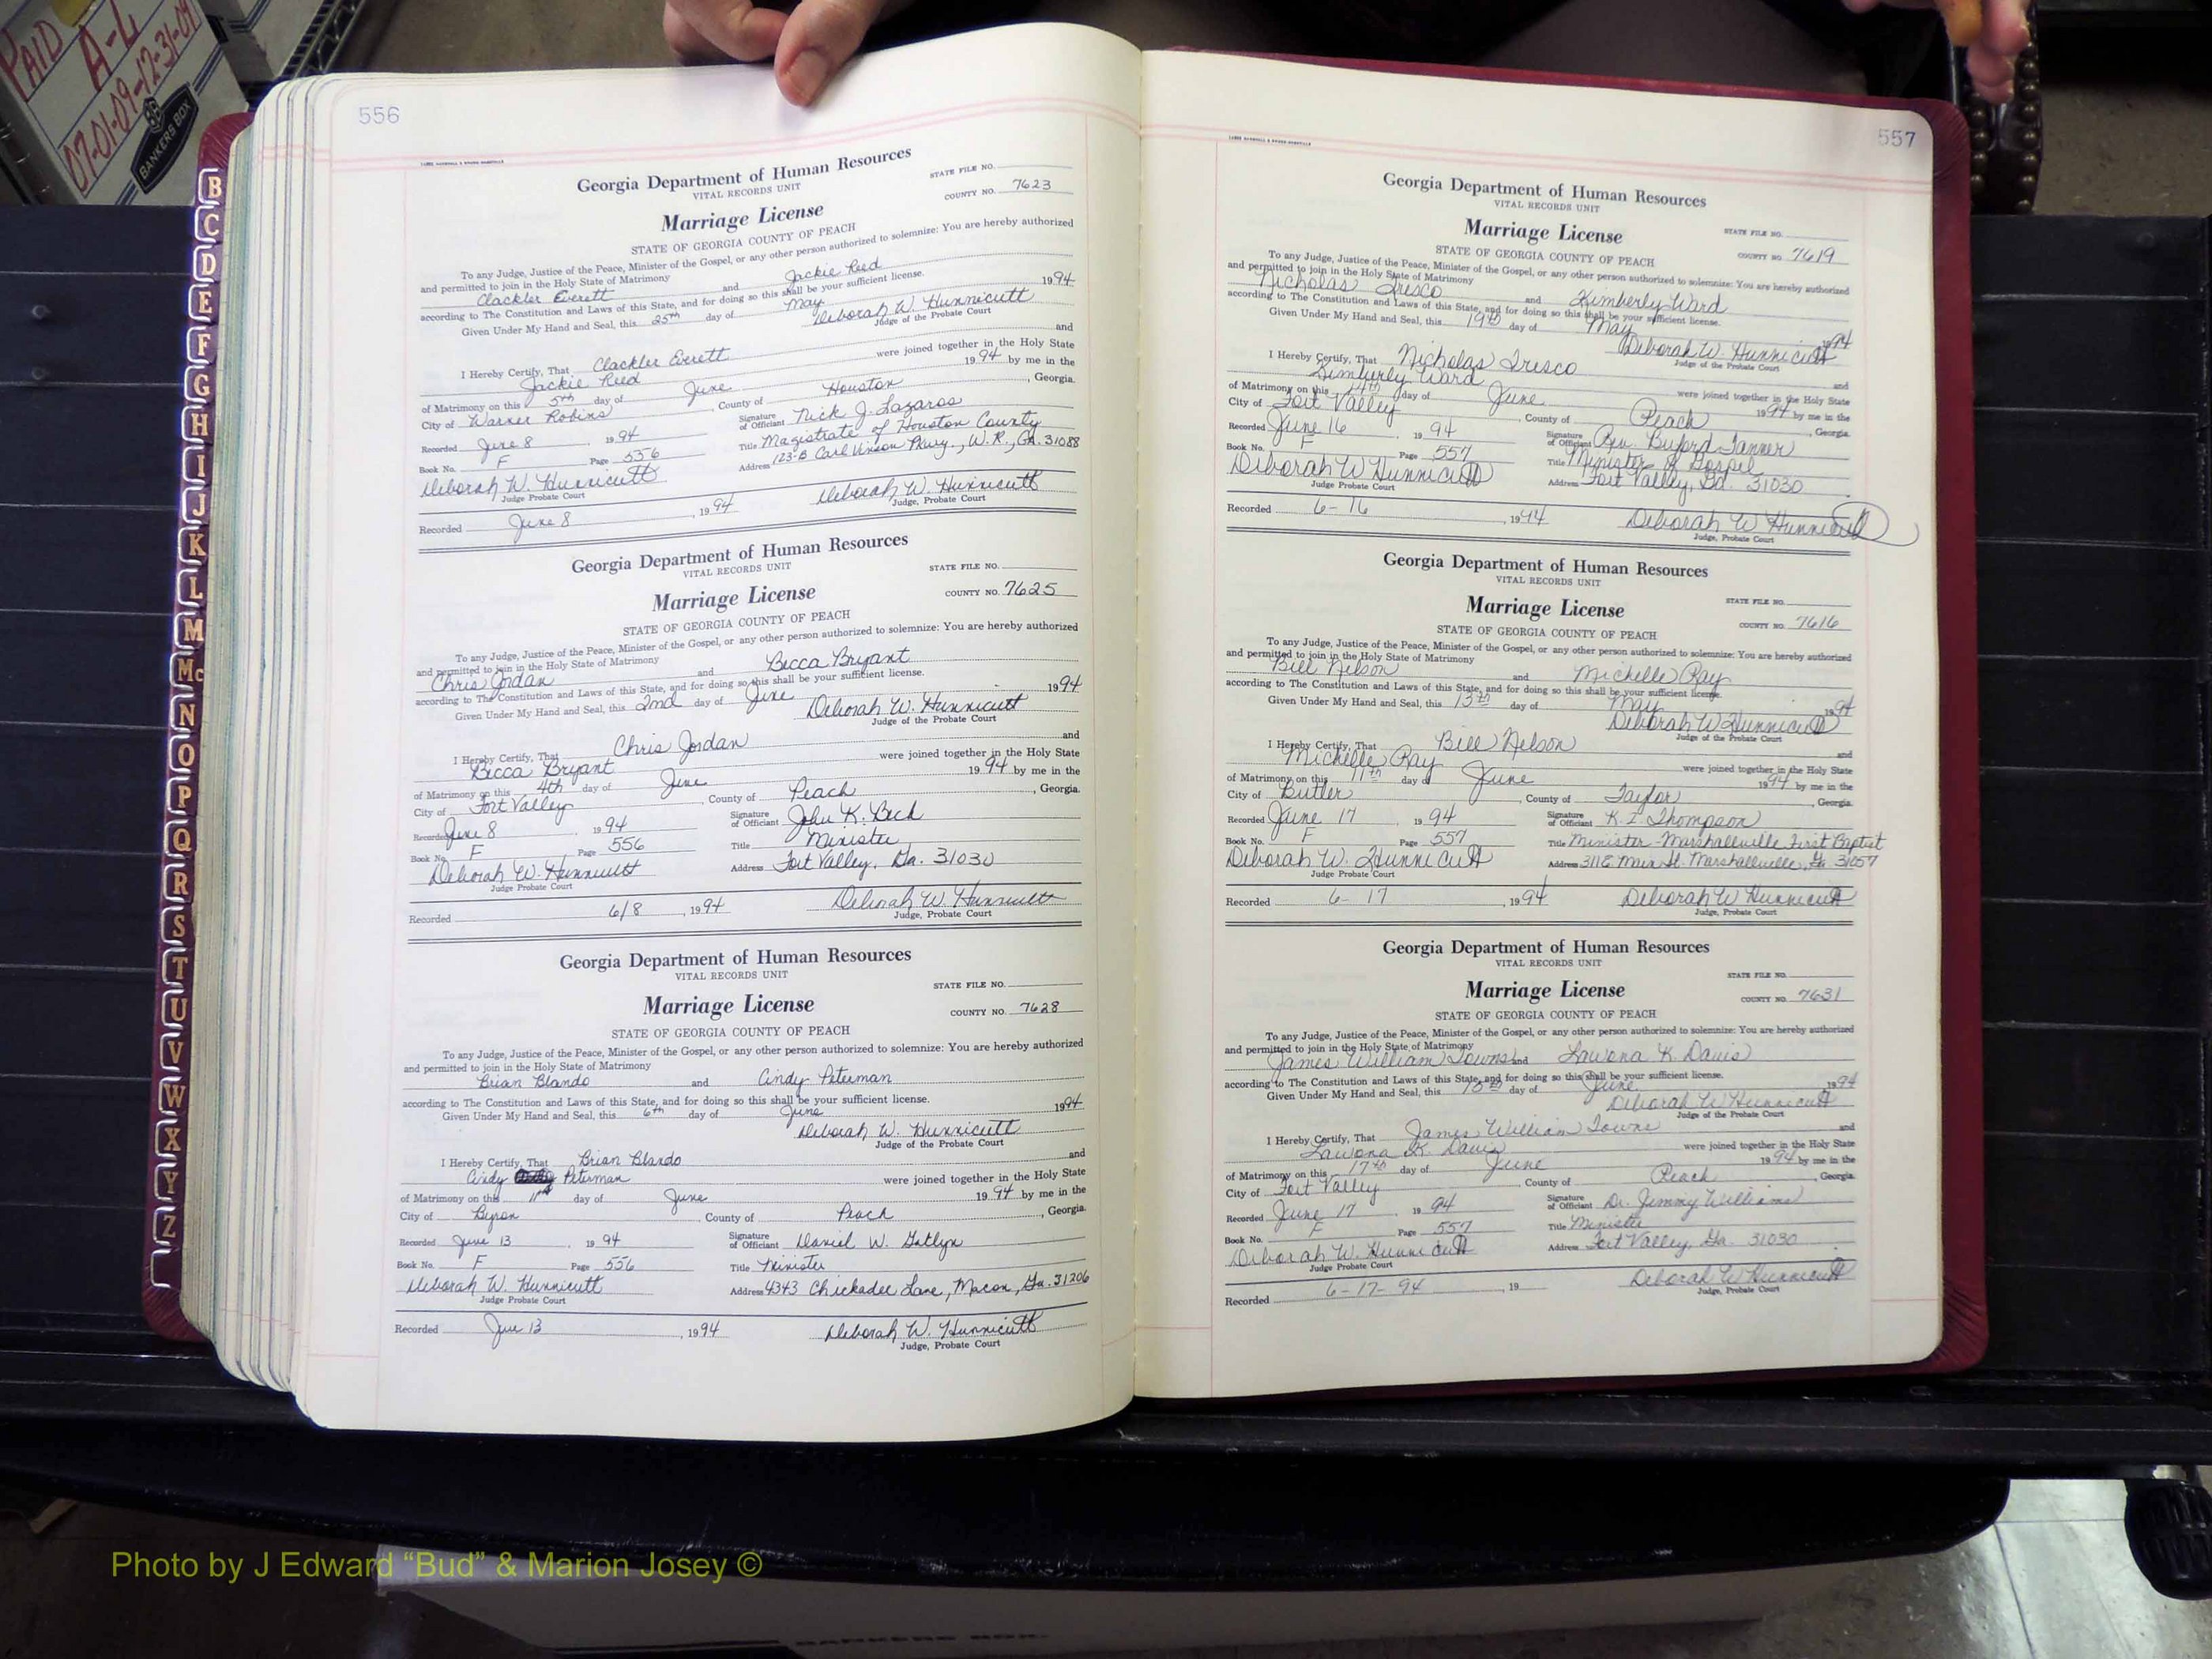 PAID
A-L
07-01-09-12-31-09
BANKERS BOX
B
C
D
E
F
G
H
I
J
K
L
M
Mc
N
O
P
Q
R
S
T
U
V
W
X
Y
Z
556
Georgia Department of Human Resources
VITAL RECORDS UNIT
STATE FILE NO.
COUNTY NO. 7623
Marriage License
STATE OF GEORGIA COUNTY OF PEACH
To any Judge, Justice of the Peace, Minister of the Gospel, or any other person authorized to solemnize: You are hereby authorized
and permitted to join in the Holy State of Matrimony
Clackler Everett and Jackie Reed
according to The Constitution and Laws of this State, and for doing so this shall be your sufficient license.
Given Under My Hand and Seal, this 25th day of May 1994
Deborah W. Hunnicutt
Judge of the Probate Court
I Hereby Certify, That Clackler Everett and
Jackie Reed were joined together in the Holy State
of Matrimony on this 5th day of June 1994 by me in the
City of Warner Robins, County of Houston, Georgia.
Recorded June 8, 1994 Signature of Officient Nick J. Lazaros
Book No. F Page 556 Title Magistrate of Houston County
Address 123-B Carl Vinson Pkwy., W.R., GA. 31088
Deborah W. Hunnicutt
Judge Probate Court
Recorded June 8, 1994 Deborah W. Hunnicutt
Judge, Probate Court
Georgia Department of Human Resources
VITAL RECORDS UNIT
STATE FILE NO.
Marriage License COUNTY NO. 7625
STATE OF GEORGIA COUNTY OF PEACH
To any Judge, Justice of the Peace, Minister of the Gospel, or any other person authorized to solemnize: You are hereby authorized
and permitted to join in the Holy State of Matrimony
Chris Jordan and Becca Bryant
according to The Constitution and Laws of this State, and for doing so this shall be your sufficient license.
Given Under My Hand and Seal, this 2nd day of June 1994
Deborah W. Hunnicutt
Judge of the Probate Court
I Hereby Certify, That Chris Jordan and
Becca Bryant were joined together in the Holy State
of Matrimony on this 4th day of June 1994 by me in the
City of Fort Valley, County of Peach, Georgia.
Recorded June 8, 1994 Signature of Officient John K.
Book No. F Page 556 Title Minister
Deborah W. Hunnicutt Address Fort Valley, Ga. 31030
Judge Probate Court
Recorded 6/8, 1994 Deborah W. Hunnicutt
Judge, Probate Court
Georgia Department of Human Resources
VITAL RECORDS UNIT
STATE FILE NO.
Marriage License COUNTY NO. 7628
STATE OF GEORGIA COUNTY OF PEACH
To any Judge, Justice of the Peace, Minister of the Gospel, or any other person authorized to solemnize: You are hereby authorized
and permitted to join in the Holy State of Matrimony
Brian Blando and Cindy Peterman
according to The Constitution and Laws of this State, and for doing so this shall be your sufficient license.
Given Under My Hand and Seal, this 6th day of June 1994
Deborah W. Hunnicutt
Judge of the Probate Court
I Hereby Certify, That Brian Blando and
Cindy Peterman were joined together in the Holy State
of Matrimony on this 11th day of June 1994 by me in the
City of Byron, County of Peach, Georgia.
Recorded June 13, 1994 Signature of Officient Daniel W. Gatlyn
Book No. F Page 556 Title Minister
Deborah W. Hunnicutt Address 4343 Chickadee Lane, Macon, Ga. 31206
Judge Probate Court
Recorded June 13, 1994 Deborah W. Hunnicutt
Judge, Probate Court
557
Georgia Department of Human Resources
VITAL RECORDS UNIT
Marriage License STATE FILE NO.
STATE OF GEORGIA COUNTY OF PEACH COUNTY NO. 7619
To any Judge, Justice of the Peace, Minister of the Gospel, or any other person authorized to solemnize: You are hereby authorized
and permitted to join in the Holy State of Matrimony
Nicholas Tresco and Kimberly Ward
according to The Constitution and Laws of this State, and for doing so this shall be your sufficient license.
Given Under My Hand and Seal, this 19th day of May 1994
Deborah W. Hunnicutt
Judge of the Probate Court
I Hereby Certify, That Nicholas Tresco and
Kimberly Ward were joined together in the Holy State
of Matrimony on this 14th day of June 1994 by me in the
City of Fort Valley, County of Peach, Georgia.
Recorded June 16, 1994 Signature of Officient Rev. Buford Tanner
Book No. F Page 557 Title Minister of Gospel
Deborah W Hunnicutt Address Fort Valley, Ga. 31030
Judge Probate Court
Recorded 6-16, 1994 Deborah W Hunnicutt
Judge, Probate Court
Georgia Department of Human Resources
VITAL RECORDS UNIT
Marriage License STATE FILE NO.
STATE OF GEORGIA COUNTY OF PEACH COUNTY NO. 7616
To any Judge, Justice of the Peace, Minister of the Gospel, or any other person authorized to solemnize: You are hereby authorized
and permitted to join in the Holy State of Matrimony
Bill Nelson and Michelle Ray
according to The Constitution and Laws of this State, and for doing so this shall be your sufficient license.
Given Under My Hand and Seal, this 13th day of May 1994
Deborah W Hunnicutt
Judge of the Probate Court
I Hereby Certify, That Bill Nelson and
Michelle Ray were joined together in the Holy State
of Matrimony on this 11th day of June 1994 by me in the
City of Butler, County of Taylor, Georgia.
Recorded June 17, 1994 Signature of Officient K. I. Thompson
Book No. F Page 557 Title Minister - Marshallville First Baptist
Deborah W. Hunnicutt Address 311 E Main St. Marshallville, Ga 31057
Judge Probate Court
Recorded 6-17, 1994 Deborah W Hunnicutt
Judge, Probate Court
Georgia Department of Human Resources
VITAL RECORDS UNIT
STATE FILE NO.
Marriage License COUNTY NO. 7631
STATE OF GEORGIA COUNTY OF PEACH
To any Judge, Justice of the Peace, Minister of the Gospel, or any other person authorized to solemnize: You are hereby authorized
and permitted to join in the Holy State of Matrimony
James William Towns and Lawona K. Davis
according to The Constitution and Laws of this State, and for doing so this shall be your sufficient license.
Given Under My Hand and Seal, this day of June 1994
Deborah W Hunnicutt
Judge of the Probate Court
I Hereby Certify, That James William Towns and
Lawona K. Davis were joined together in the Holy State
of Matrimony on this 17th day of June 1994 by me in the
City of Fort Valley, County of Peach, Georgia.
Recorded June 17, 1994 Signature of Officient Dr. Jimmy Williams
Book No. F Page 557 Title Minister
Deborah W. Hunnicutt Address Fort Valley, Ga. 31030
Judge Probate Court
Recorded 6-17-94, 19 Deborah W Hunnicutt
Judge, Probate Court
Photo by J Edward “Bud” & Marion Josey ©